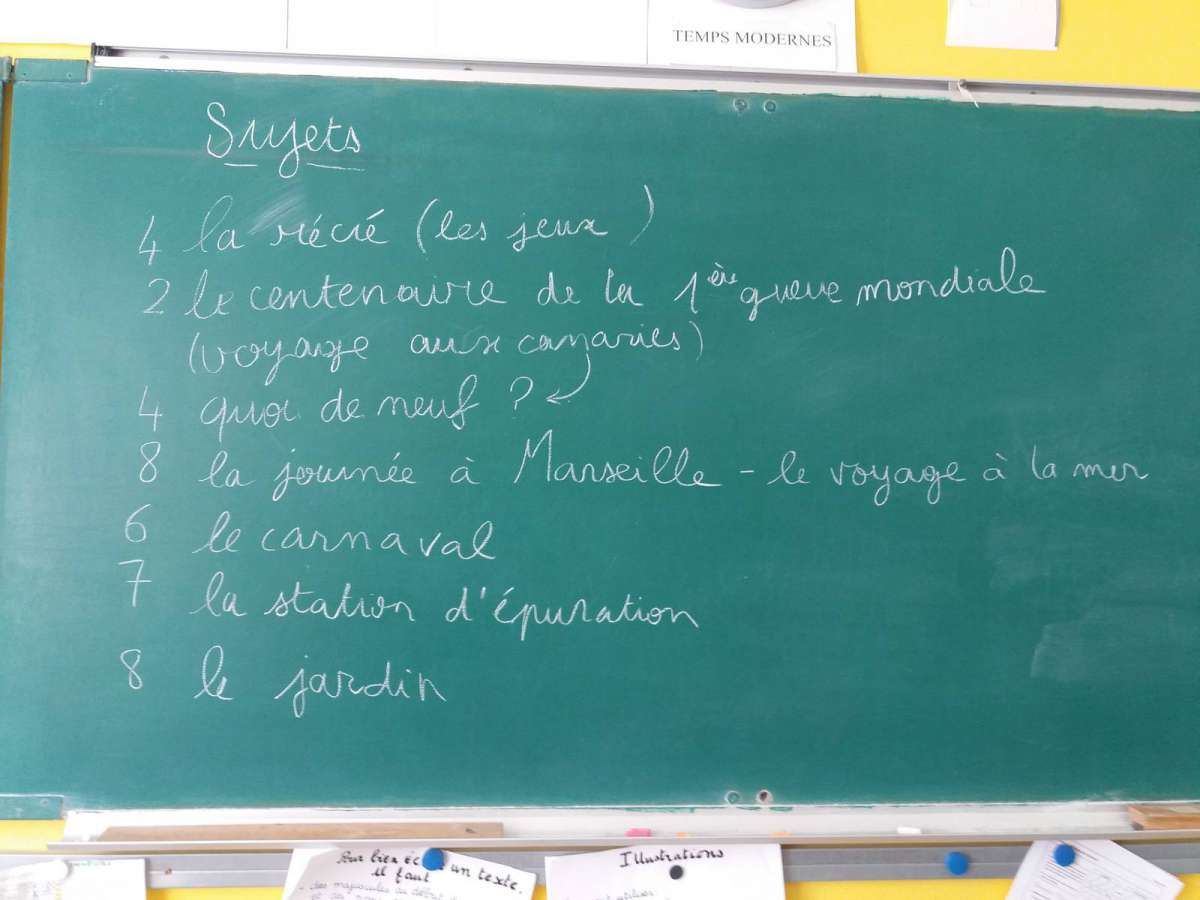 TEMPS MODERNES
Sujets
4 la récré (les jeux)
2 le centenaire de la 1ère guerre mondiale
(voyage aux canaries)
4 quoi de neuf ?
8 la journée à Marseille - le voyage à la mer
6 le carnaval
7 la station d'épuration
8 le jardin
Pour bien un texte,
il faut
Illustrations